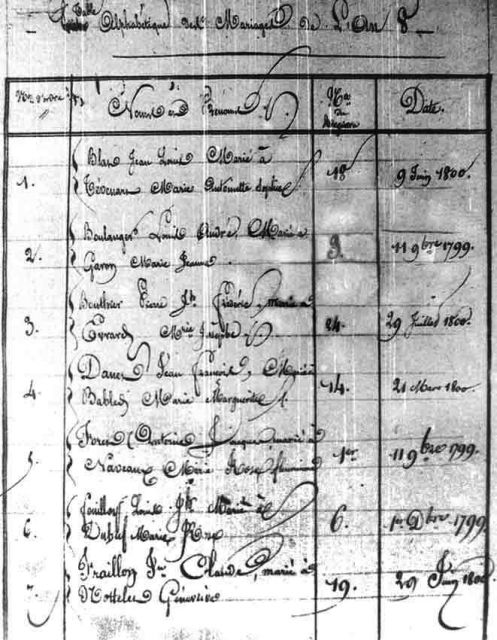 Table Alphabétique des Mariages de L'an 8
Nos d'ordre Noms et Prénoms Nos du Registre Date.
1. Blan Jean Louis Marié à 18 9 Juin 1800.
Marie Antoinette Sophie
2. Boulanger Louis André Marié à 3. 11 9bre 1799.
Garon Marie Jeanne.
3. Bouthier Pierre Jh. Frédéric, marié à 24. 29 Juillet 1800.
Evrard Marie Josephe
4. Danés Jean François, Marié à 14. 21 Mars 1800.
Babled Marie Marguerite
5. Antoine Jacques marié à 1er 11 9bre 1799.
Naveaux Marie Rose
6. Louis Jh. Marié à 6. 1er Xbre 1799
Marie Rose
7. Fraillon Claude, marié à 19. 29 Juin 1800
Geneviève